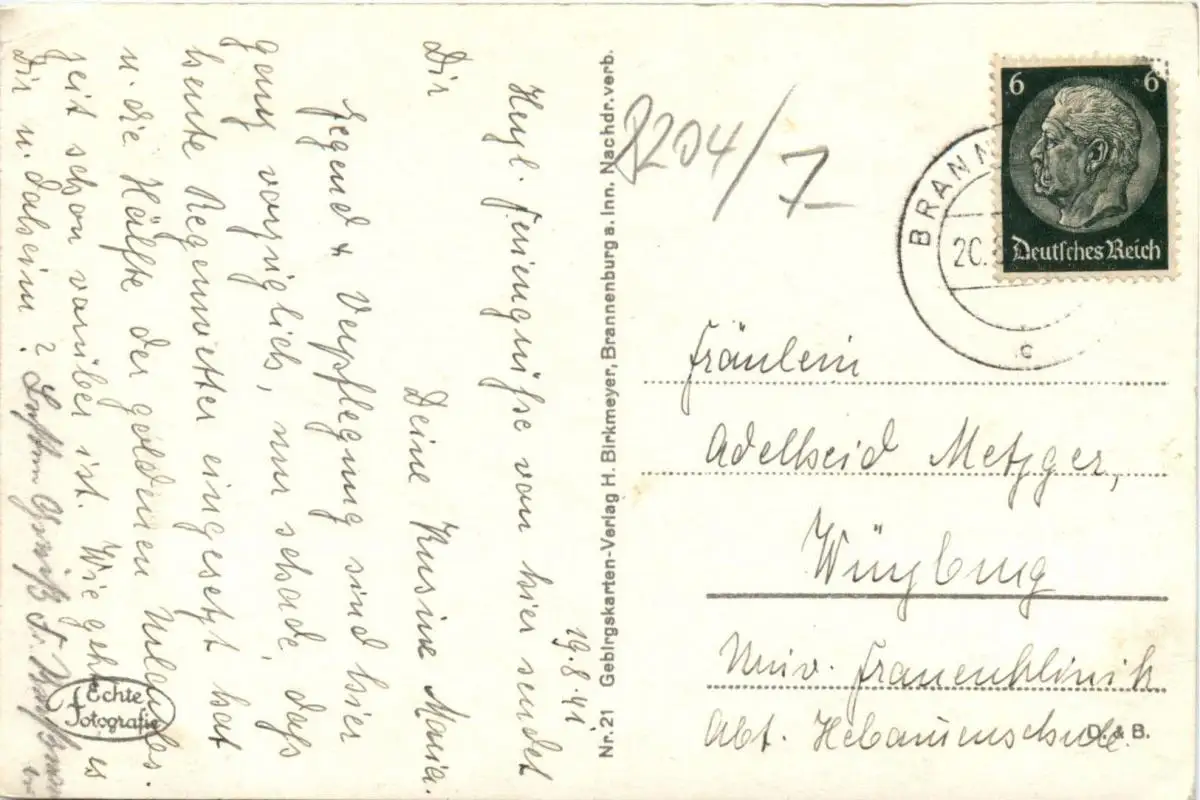 19.8.41
Herzl. Feriengrüße von hier sendet
Dir
Deine Kusine Maria.
Gegend & Verpflegung sind hier
ganz vorzüglich, nur schade, daß
heute Regenwetter eingesetzt hat
u. die Hälfte der goldenen Urlaubs.
zeit schon vorüber ist. Wie geht es
Dir u. Dalseim?
Echte
Fotografie
Nr. 21 Gebirgskarten-Verlag H. Birkmeyer, Brannenburg a. Inn. Nachdr. verb.
8204/7
6 6
Deutsches Reich
BRANN
20.
c
Fräulein
Adelheid Metzger,
Würzburg
Univ. Frauenklinik
Abt. Hebammenschule.
D. & B.